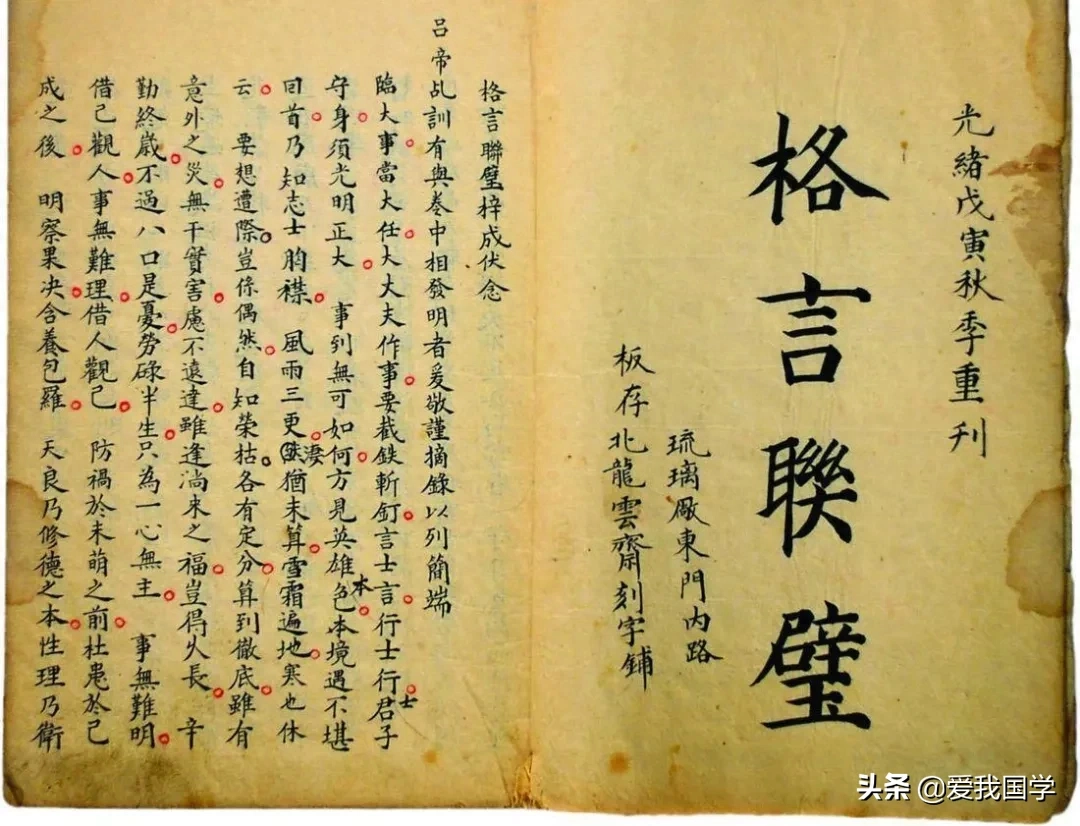 光緒戊寅秋季重刋
格言聯璧
琉璃厰東門內路
板存北龍雲齋刻字鋪
格言聯璧梓成伏念
吕帝乩訓有與卷中相發明者爰敬謹摘錄以列簡端
臨大事當大任大大夫作事要截鉄斬釘言士言行士行君子
士
守身須光明正大 事到無可如何方見英雄色本境遇不堪
本
回首乃知志士胸襟 風雨三更猶未算雪霜遍地寒也休
凄
云 要想遭際豈係偶然自知榮枯各有定分算到徹底雖有
意外之災無干實害慮不遠達雖逢淌来之福豈得乆長 辛
勤終嵗不過八口是憂勞碌半生只為一心無主 事無難明
借己觀人事無難理借人觀己 防禍於未萌之前杜患於己
成之後 明察果决含養包羅 天良乃修德之本性理乃衛
头条 @爱我国学